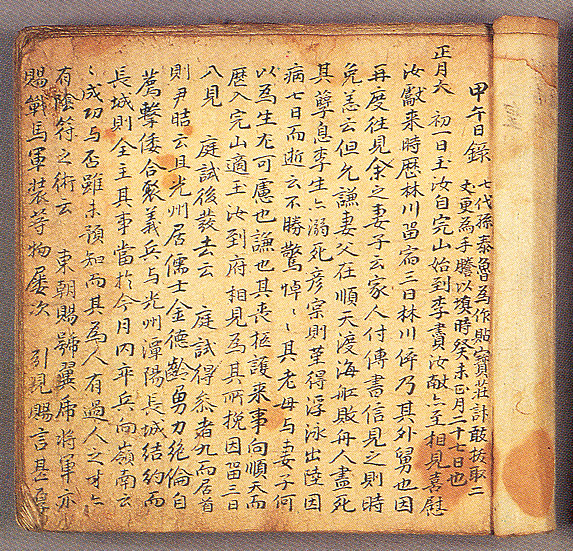 甲午日錄
七代孫泰魯爲作貼寶莊計敢拔取二
丈更爲手謄以塡時癸未正月二十七日也
正月大 初一日玉汝自完山始到李賚汝獻亦至相見喜慰
汝獻來時歷林川留宿三日林川倅乃其外舅也因
再度往見余之妻子云家人付傳書信見之則時
免恙云但允謙妻父在順天渡海舡敗舟人盡死
其孽息李生亦溺死彦宗則菫得浮泳出陸因
病七日而逝云不勝驚悼〻其老母与妻子何
以爲生尤可慮也謙也其喪柩護來事向順天而
歷入完山適玉汝到府相見爲其所挽因留三日
入見 庭試後發去云 庭試得參者九而居首
則尹晧云且光州居儒士金德齡勇力絶倫自
薦擊倭合聚義兵与光州潭陽長城結約而
長城則全主其事當於今月內率兵向嶺南云
〻成功与否雖未預知而其爲人有過人之才亦
有陰符之術云 東朝賜號翼虎將軍亦
賜戰馬軍裝等物屢次 引見賜言甚